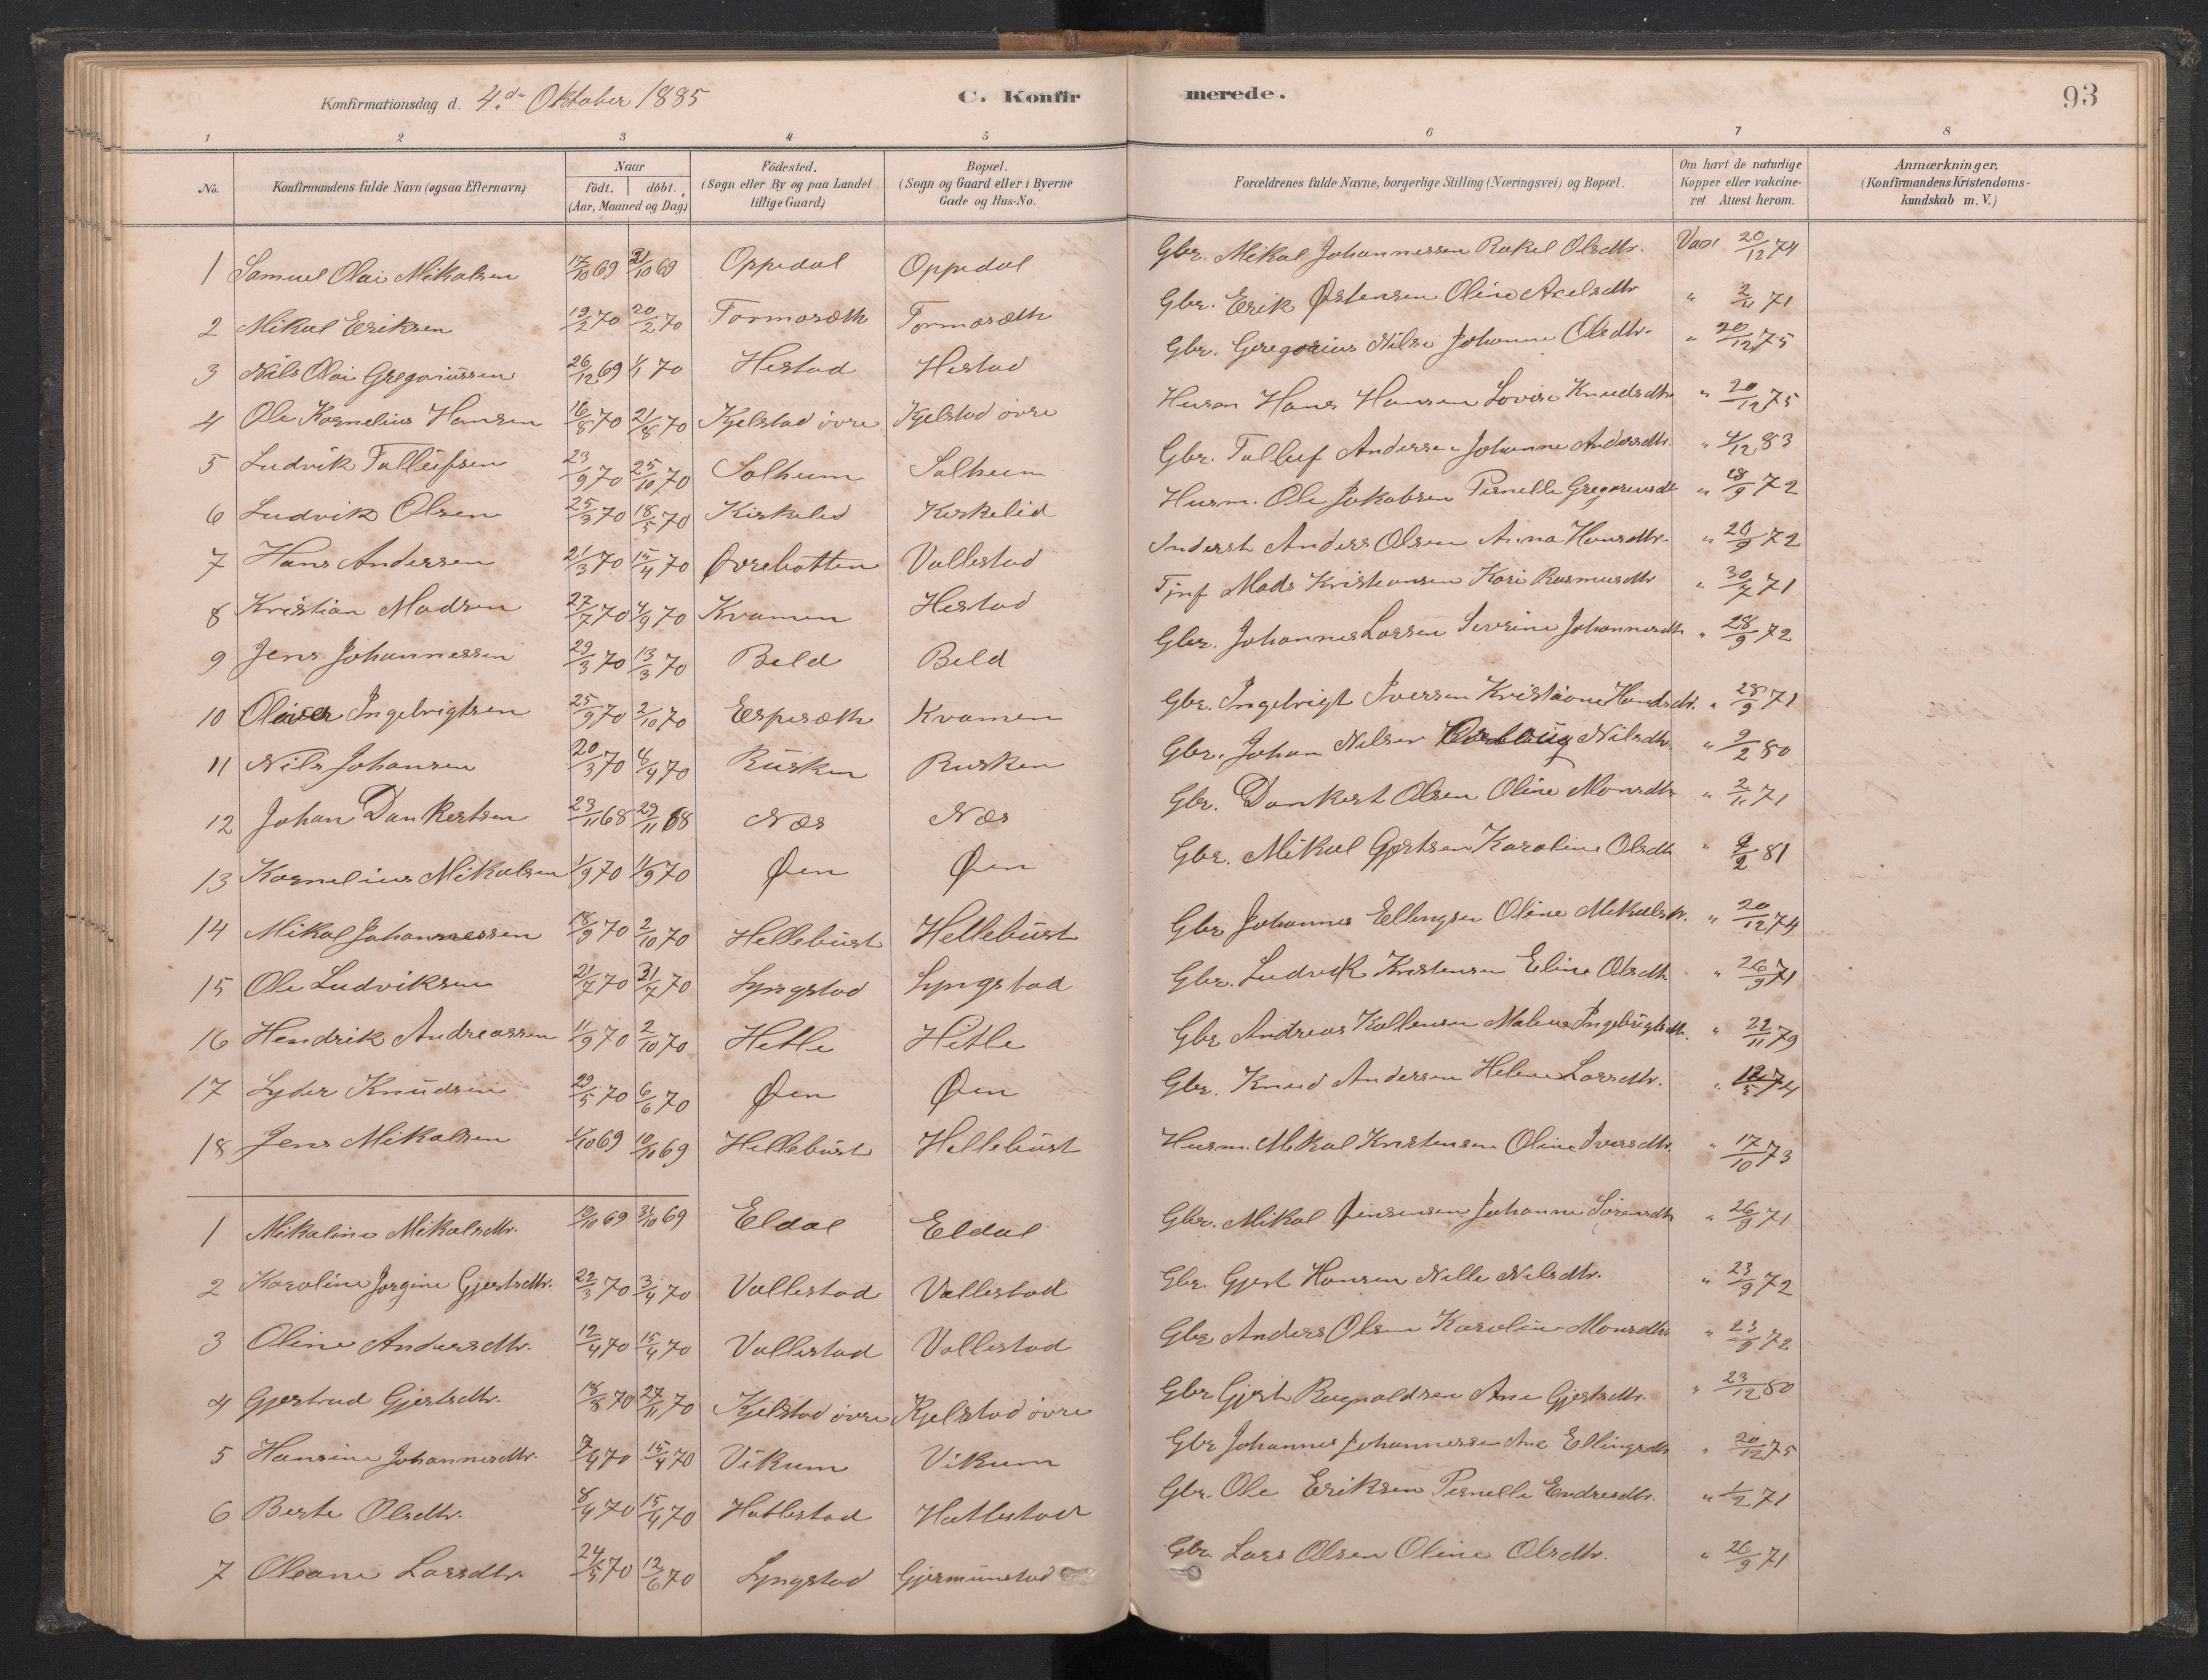 Konfirmationsdag d. 4.de Oktober 1885 C. Konfirmerede. 93
1 2 3 4 5 6 7 8
No. Konfirmandens fulde Navn (ogsaa Efternavn) Naar födt. döbt. (Aar, Maaned og Dag.) Födested. (Sogn eller By og paa Landet tillige Gaard.) Bopæl. (Sogn og Gaard eller i Byerne Gade og Hus-No. Forældrenes fulde Navne, borgerlige Stilling (Næringsvei) og Bopæl. Om havt de naturlige Kopper eller vakcineret. Attest herom. Anmærkninger, (Konfirmandens Kristendomskundskab m. V.)
1 Samuel Olai Mikalsen 17/10 69 31/10 69 Oppedal Oppedal Gbr. Mikal Johannessen Rakel Olsdtr. Vax 20/12 74
2 Mikal Eriksen 19/2 70 20/2 70 Tormoræth Tormoræth Gbr. Erik Østensen Oline Axelsdtr " 2/11 71
3 Nils Olai Gregoriussen 26/12 69 1/1 70 Hestad Hestad Gbr. Gregorius Nilse Johanne Olsdtr. " 20/12 75
4 Ole Kornelius Hansen 16/8 70 21/8 70 Kjelstad övre Kjelstad övre Husm Hans Hansen Lovise Knudsdtr " 20/12 75
5 Ludvik Tollefsen 23/9 70 25/10 70 Solheim Solheim Gbr. Tollef Andersen Johanne Andersdtr. " 4/12 83
6 Ludvik Olsen 25/3 70 18/5 70 Kirkelid Kirkelid Husm. Ole Jakobsen Pernelle Gregoriusdt " 18/9 72
7 Hans Andersen 21/3 70 15/4 70 Øvrebotten Vallestad Inderst Anders Olsen Anna Hansdtr. " 20/9 72
8 Kristian Madsen 27/7 70 4/9 70 Kvamen Hestad Tjnf Mads Kristiansen Kari Rasmusdtr " 30/7 71
9 Jens Johannessen 29/3 70 13/3 70 Beld Beld Gbr. Johannes Larsen Severine Johannesdtr " 28/9 72
10 Oliver Ingebrigtsen 25/9 70 2/10 70 Esperæth Kvamen Gbr. Ingebrigt Iversen Kristiane Hansdtr. " 28/9 71
11 Nils Johansen 20/3 70 4/4 70 Rüsken Rusken Gbr. Johan Nilsen Nilsdtr " 9/2 80
12 Johan Dankertsen 23/11 68 29/11 68 Næs Næs Gbr. Dankert Olsen Oline Monsdtr " 2/11 71
13 Kornelius Mikalsen 1/9 70 11/9 70 Øen Øen Gbr. Mikal Gjertsen Karoline Olsdtr " 9/2 81
14 Mikal Johannessen 18/9 70 2/10 70 Hellebüst Hellebüst Gbr Johannes Ellingsen Oline Mikalsdtr. " 20/12 74
15 Ole Ludviksen 21/7 70 31/7 70 Lyngstad Lyngstad Gbr. Ludvik Kristensen Eline Olsdtr " 26/9 71
16 Hendrik Andreassen 11/9 70 2/10 70 Hetle Hetle Gbr Andreas Kollensen Malene Ingebrigtsdtr. " 22/11 79
17 Lyder Knudsen 29/5 70 6/6 70 Øen Øen Gbr. Knud Andersen Helene Larsdtr. " 12/5 74
18 Jens Mikalsen 1/10 69 10/10 69 Hellebüst Hellebüst Husm. Mikal Kristensen Oline Iversdtr. " 17/10 73
1 Mikaline Mikalsdtr. 19/10 69 31/10 69 Eldal Eldal Gbr. Mikal Jensensen Johanne Sörensdtr " 26/9 71
2 Karoline Jorgine Gjertsdtr. 22/3 70 3/4 70 Vallestad Vallestad Gbr. Gjert Hansen Nille Nilsdtr. " 23/9 72
3 Oline Andersdtr. 12/4 70 15/4 70 Vallestad Vallestad Gbr Anders Olsen Karoline Monsdtr " 23/9 72
4 Gjertrud Gjertsdtr. 18/8 70 27/11 70 Kjelstad övre Kjelstad övre Gbr Gjert Ragnaldsen Ane Gjertsdtr. " 23/12 80
5 Hansine Johannesdtr. 7/4 70 15/4 70 Vikum Vikum Gbr Johannes Johannessen Ane Ellingsdtr " 20/12 75
6 Berte Olsdtr. 8/4 70 15/4 70 Hatlestad Hatlestad Gbr. Ole Eriksen Pernelle Endresdtr. " 1/2 71
7 Oleane Larsdtr. 24/5 70 12/6 70 Lyngstad Gjermunstad Gbr. Lars Olsen Oline Olsdtr. " 26/9 71